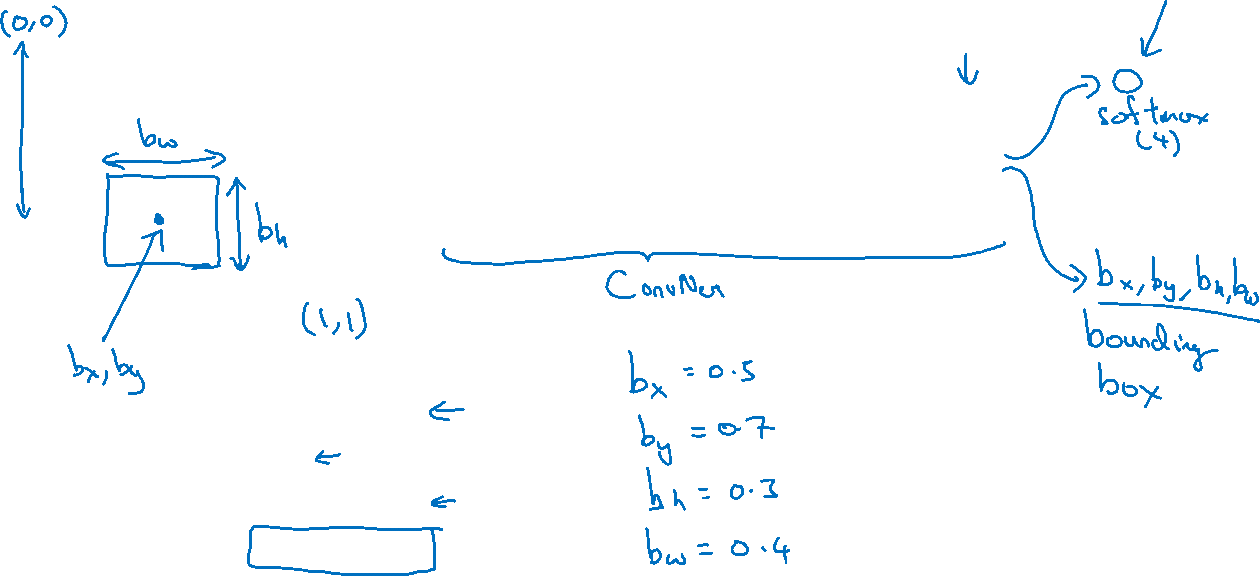 (0,0)
bw
bh
bx, by
(1,1)
ConvNet
softmax
(4)
bx, by, bh, bw
bounding
box
bx = 0.5
by = 0.7
bh = 0.3
bw = 0.4